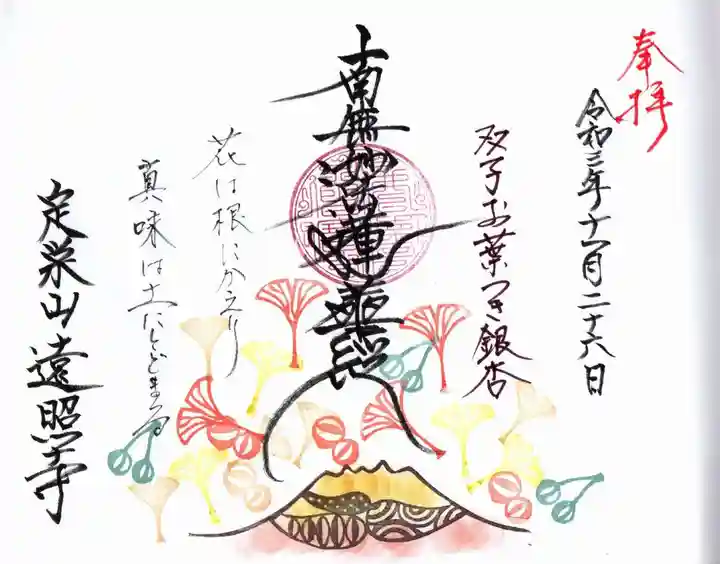 奉拝
令和三年十一月二十六日
双子お葉つき銀杏
南無妙法蓮華経
花は根にかえり
真味は土にとどまる
定栄山遠照寺